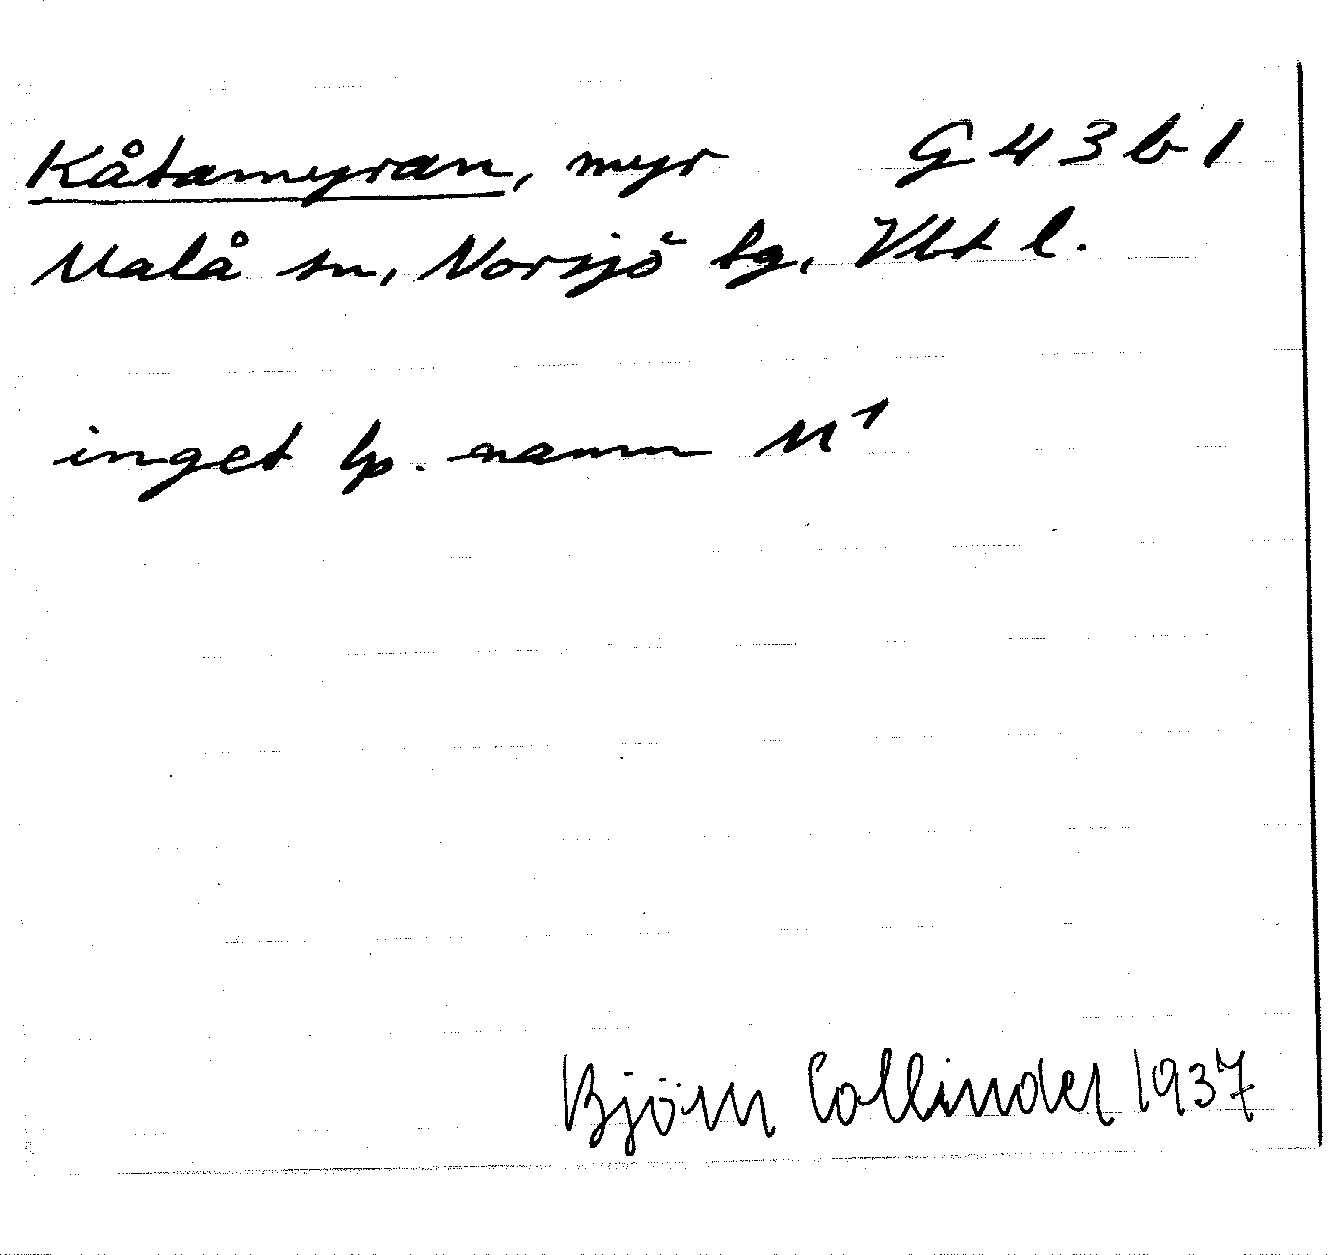 Kåtamyran, myr G 43 b 1
Malå sn, Norsjö tg, Vbt l.
inget lp. namn M¹
Björn Collinder 1937